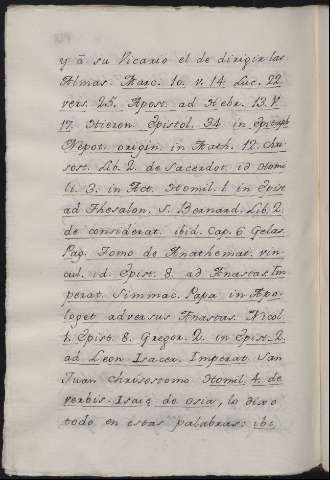 y â su Vicario el de dirigir las
Almas. Marc. 10. v. 14. Luc. 22
vers. 25. Apost. ad Hebr. 13. V.
17. Hieron Epistol. 34 in Epitaph
Nepot. origin in Math. 12. chri-
sost. Lib. 2. de Sacerdot. id Homi
li. 3. in Act. Homil. 1. in Epist
ad Thesalon. S. Bernard. Lib. 2.
de considerat. ibid. Cap. 6. Gelas.
Pag. Tomo de Anathemat. vin-
cul. id. Epist. 8. ad Anastas. Im
perat. Simmac. Papa in Apo-
loget adversus Anastas. Nicol.
1. Epist. 8. Gregor. 2. in Epist. 2.
ad Leon Isacer. Imperat. San
Juan Chrisostomo Homil. 4. de
verbis. Isaiæ de osia, lo dixo
todo en estas palabras: ibi,